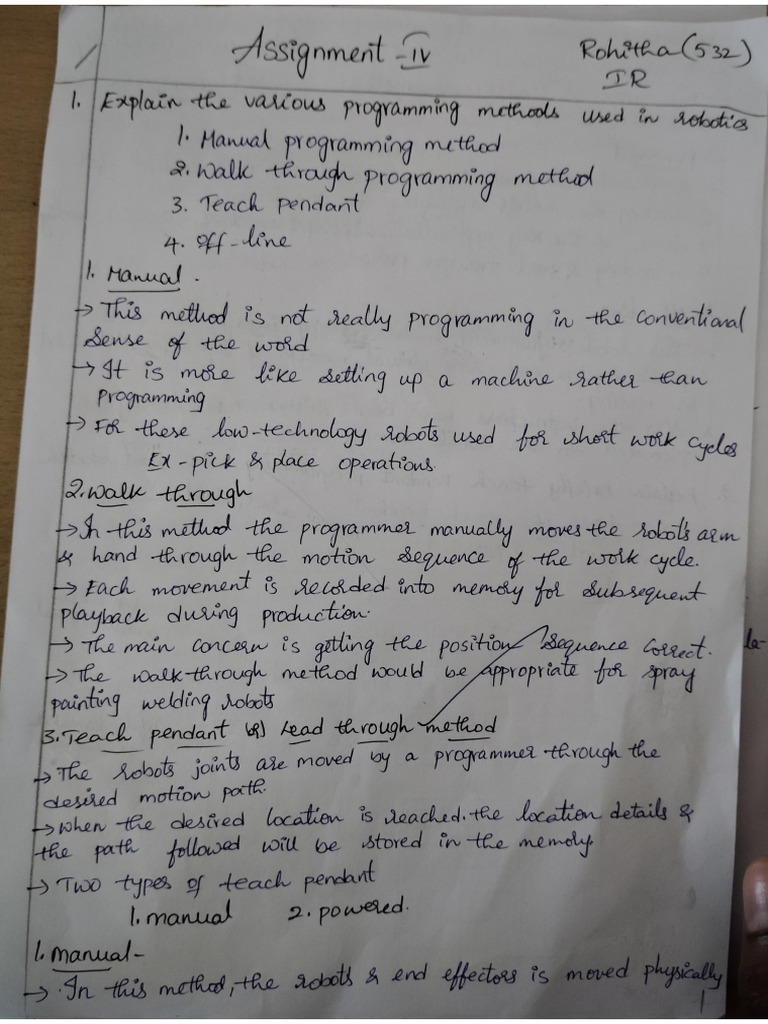 Assignment - IV
Rohitha (532)
IR
1. Explain the various programming methods used in robotics
1. Manual programming method
2. Walk through programming method
3. Teach pendant
4. Off-line
1. Manual.
→ This method is not really programming in the conventional
sense of the word
→ It is more like setting up a machine rather than
programming
→ For these low-technology robots used for short work cycles
Ex - pick & place operations.
2. Walk through
→ In this method the programmer manually moves the robot's arm
& hand through the motion sequence of the work cycle.
→ Each movement is recorded into memory for subsequent
playback during production.
→ The main concern is getting the position sequence correct.
→ The walk-through method would be appropriate for spray
painting welding robots
3. Teach pendant (or) Lead through method
→ The robots joints are moved by a programmer through the
desired motion path.
→ When the desired location is reached. the location details &
the path followed will be stored in the memory.
→ Two types of teach pendant
1. manual 2. powered.
1. manual -
→ In this method, the robots & end effectors is moved physically
1